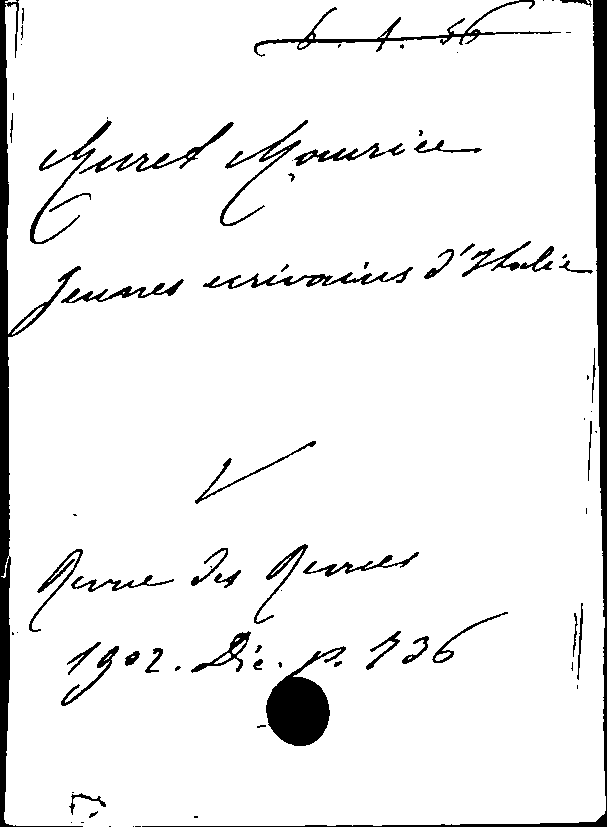 6. 1. 56
Muret Maurice
Jeunes ecrivains d'Italie
Revue des Revues
1902. Déc. p. 736